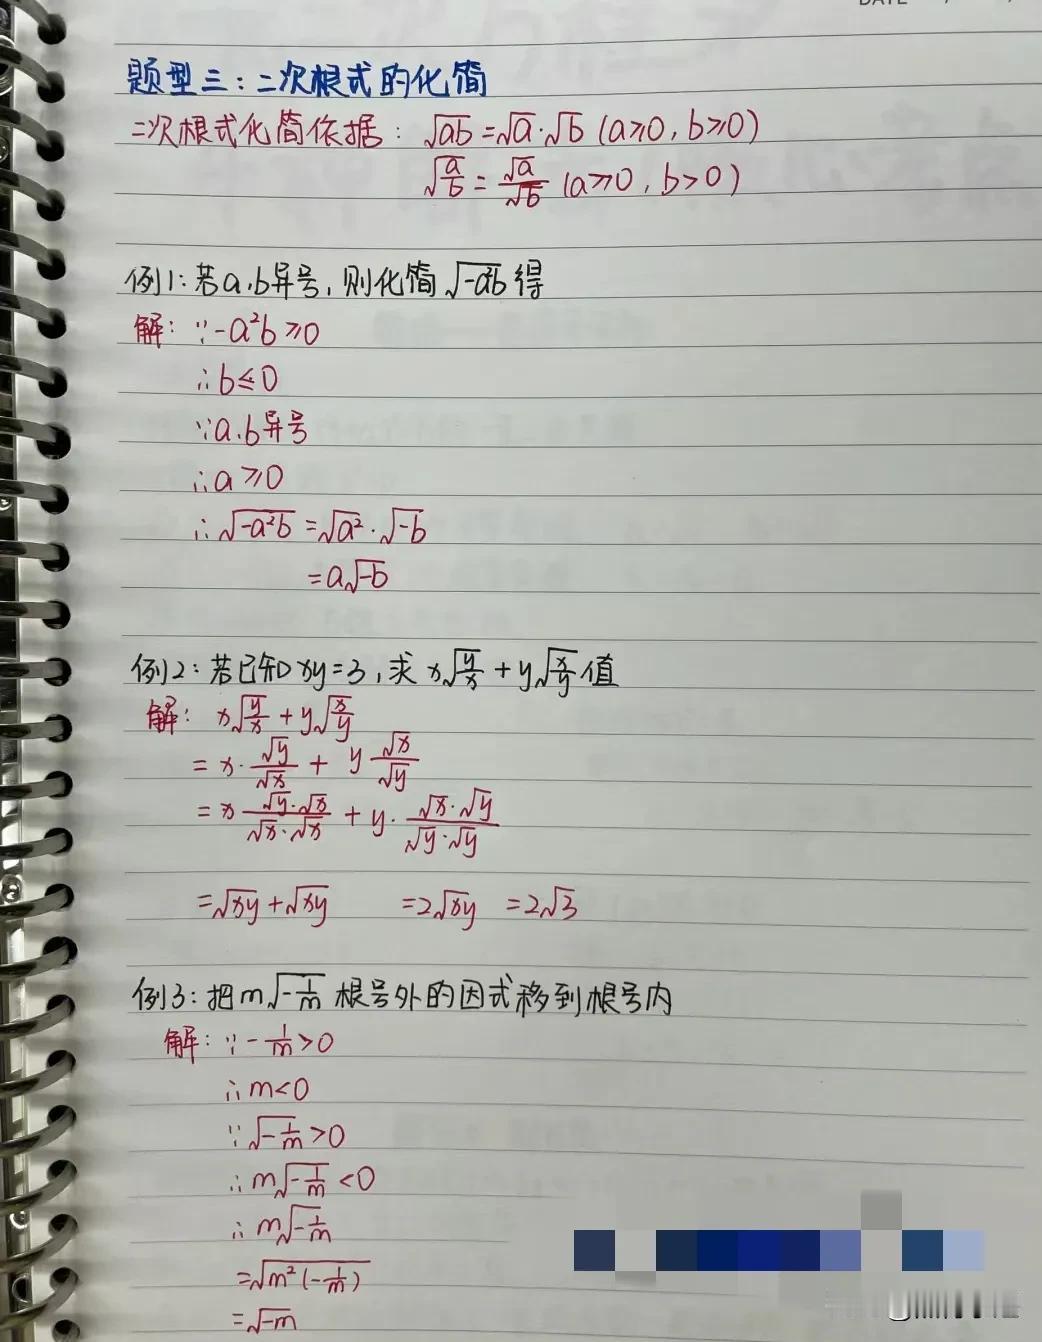 DATE
题型三：二次根式的化简
二次根式化简依据：√ab=√a·√b (a≥0，b≥0)
√(a/b)=√a/√b (a≥0，b>0)
例1：若a.b异号，则化简√(-a²b)得
解：∵-a²b≥0
∴b≤0
∵a.b异号
∴a≥0
∴√(-a²b)=√a²·√-b
=a√-b
例2：若已知xy=3，求x√(y/x)+y√(x/y)值
解：x√(y/x)+y√(x/y)
=x·√y/√x+y√x/√y
=x (√y·√x)/(√x·√x)+y·(√x·√y)/(√y·√y)
=√xy+√xy =2√xy =2√3
例3：把m√(-1/m)根号外的因式移到根号内
解：∵-1/m>0
∴m<0
∵√(-1/m)>0
∴m√(-1/m)<0
∴m√(-1/m)
=√(m²(-1/m))
=√-m